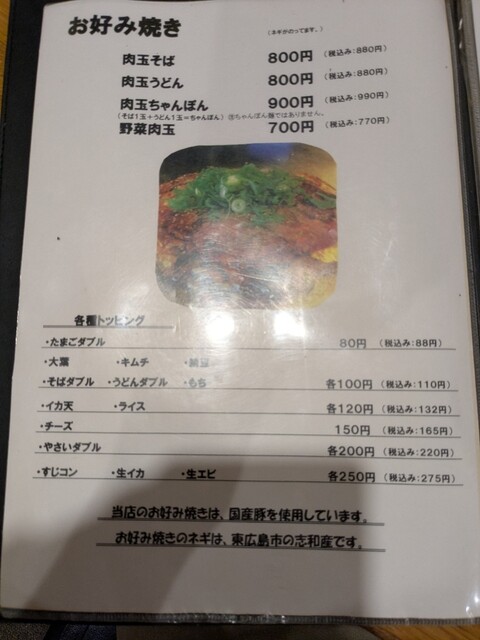 お好み焼き
(ネギがのってます。)
肉玉そば 800円 (税込み:880円)
肉玉うどん 800円 (税込み:880円)
肉玉ちゃんぽん 900円 (税込み:990円)
(そば1玉+うどん1玉=ちゃんぽん) ちゃんぽん麺ではありません。
野菜肉玉 700円 (税込み:770円)
各種トッピング
・たまごダブル 80円 (税込み:88円)
・大葉 ・キムチ ・納豆
・そばダブル ・うどんダブル ・もち 各100円 (税込み:110円)
・イカ天 ・ライス 各120円 (税込み:132円)
・チーズ 150円 (税込み:165円)
・やさいダブル 各200円 (税込み:220円)
・すじコン ・生イカ ・生エビ 各250円 (税込み:275円)
当店のお好み焼きは、国産豚を使用しています。
お好み焼きのネギは、東広島市の志和産です。